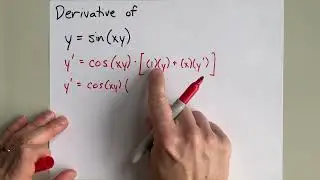 Derivative of
y = sin(xy)
y' = cos(xy) · [(1)(y) + (x)(y')]
y' = cos(xy) (